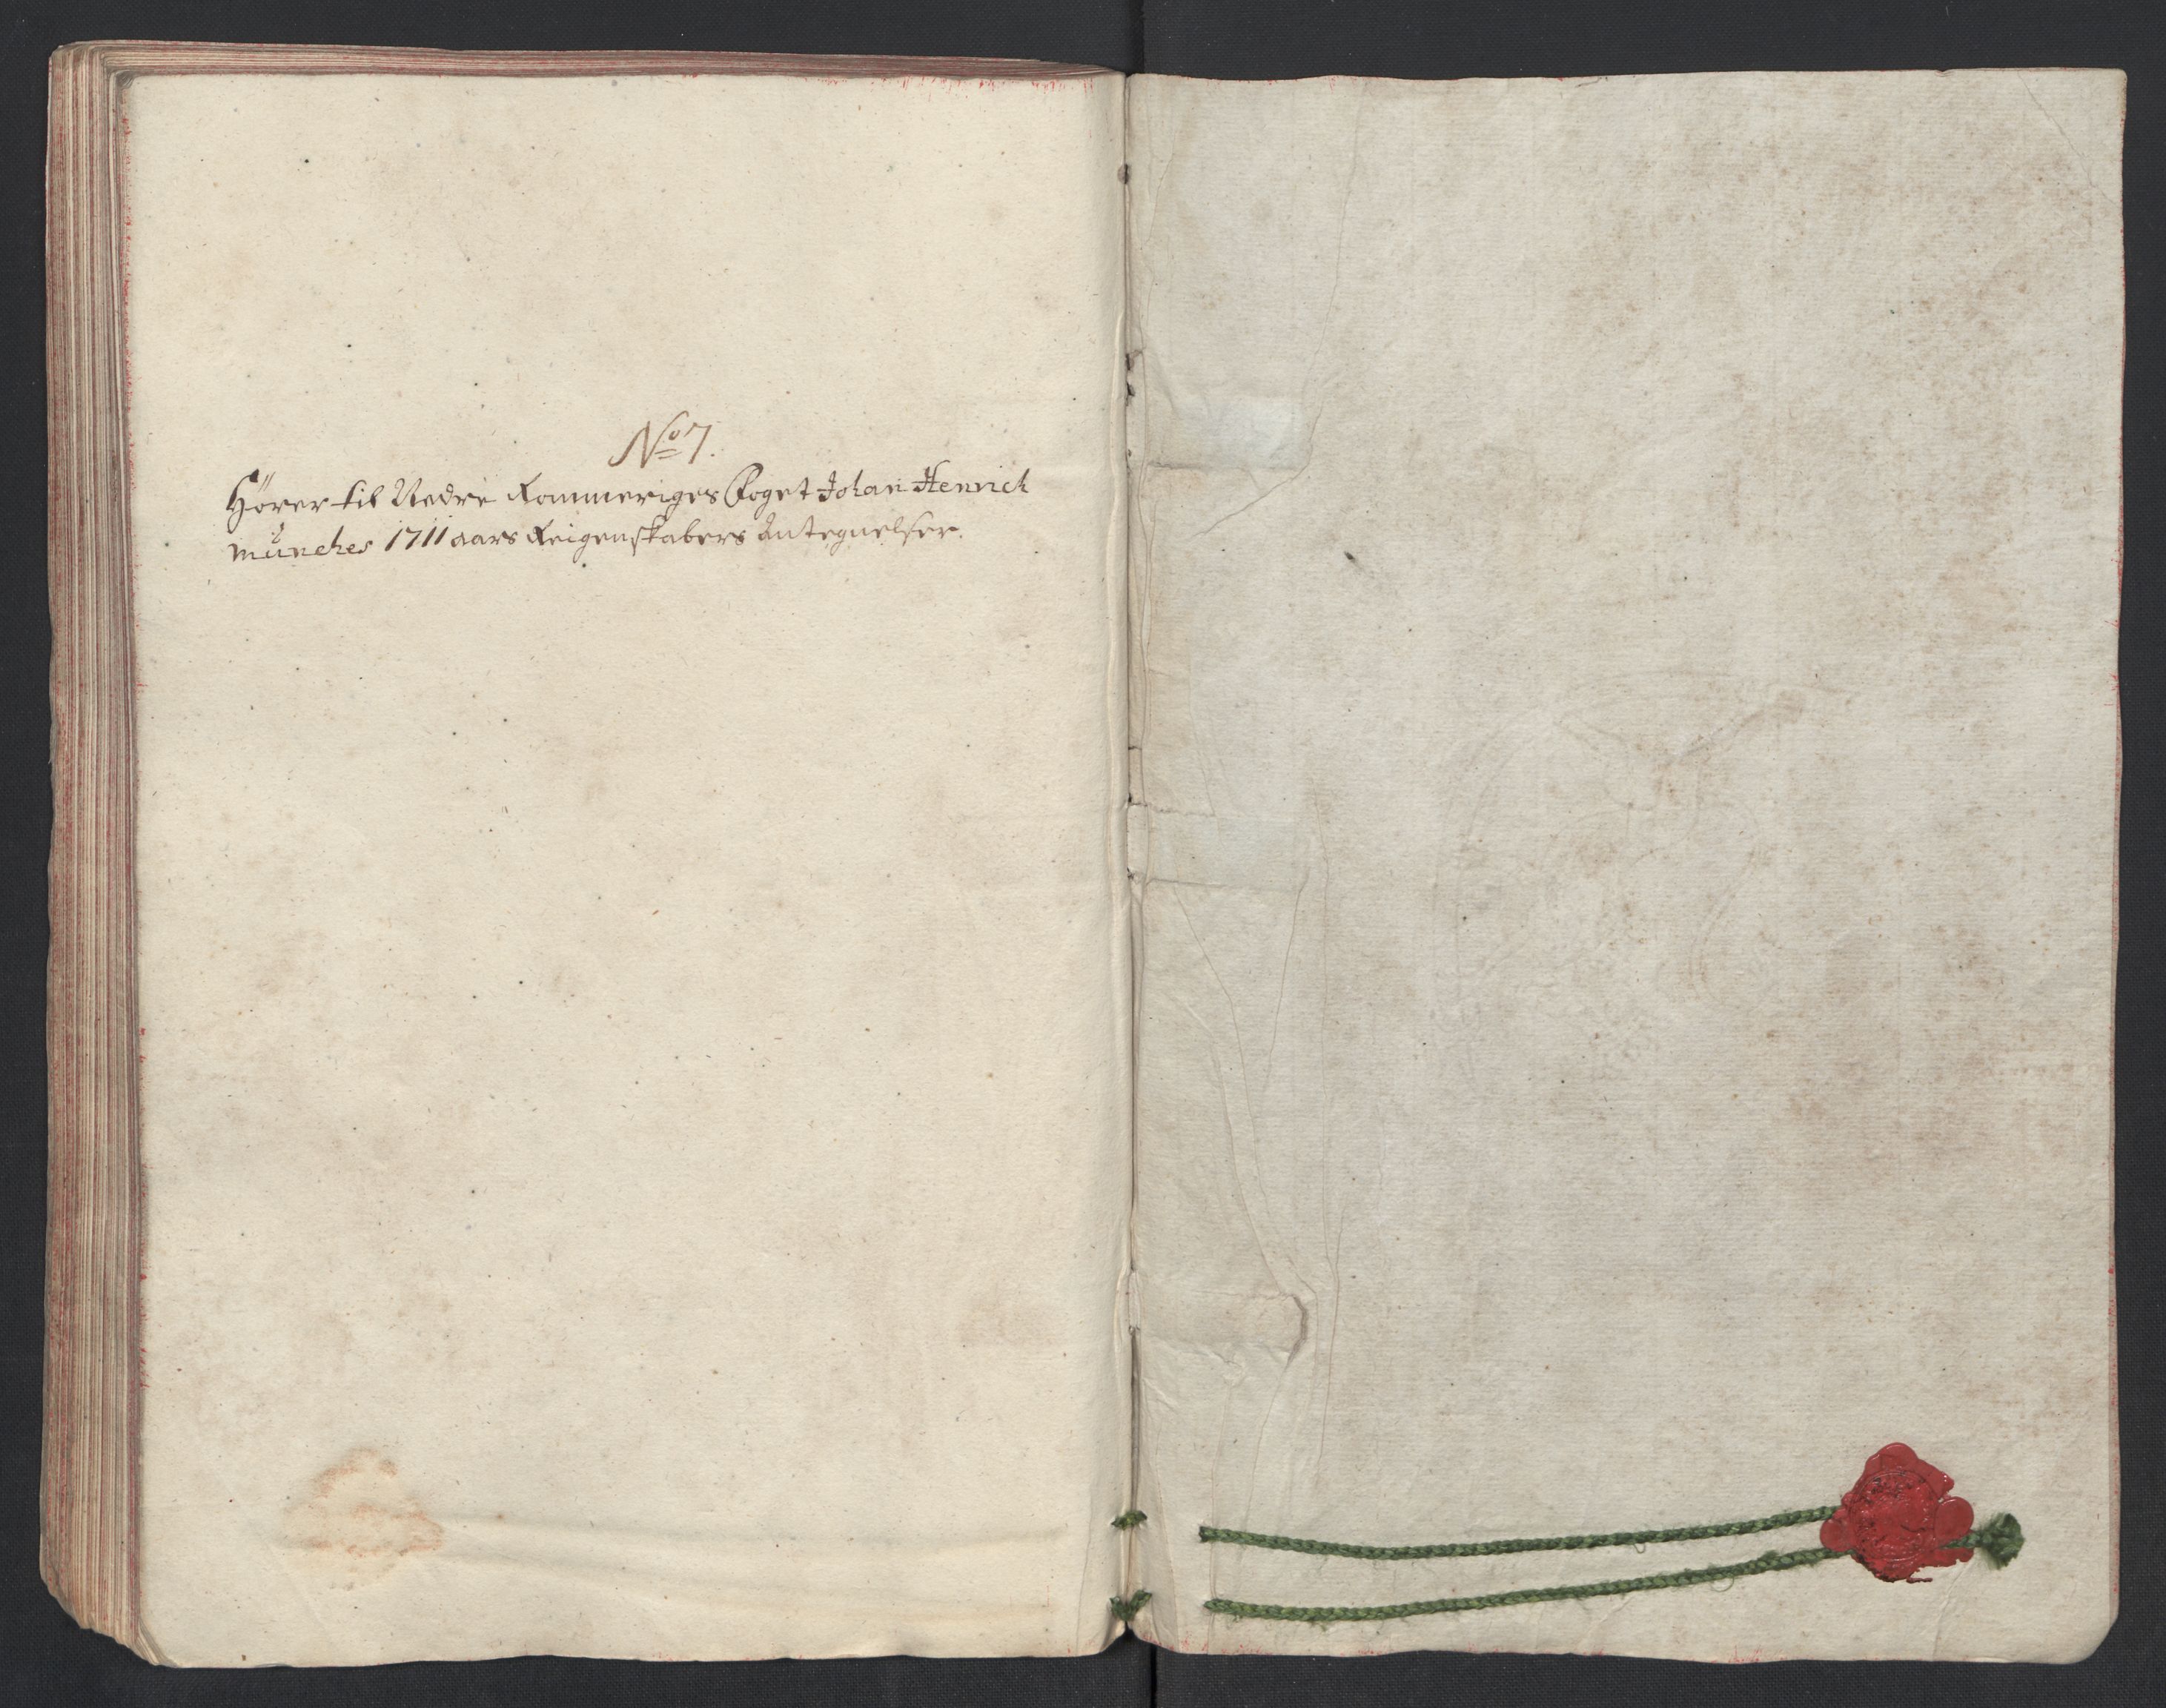 No 7.
Hörer til Nedre Rommeriges Foget Johan Henrich
Münches 1711 aars Reigenskabers Antegnelser.